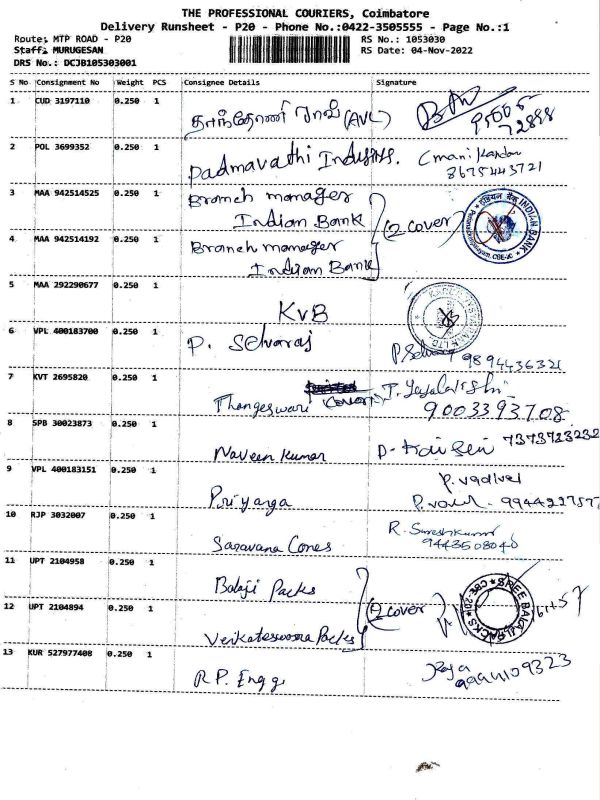 THE PROFESSIONAL COURIERS, Coimbatore
Delivery Runsheet - P20 - Phone No.:0422-3505555 - Page No.:1
Route: MTP ROAD - P20 RS No.: 1053030
Staff: MURUGESAN RS Date: 04-Nov-2022
DRS No.: DCJB105303001
S No Consignment No Weight PCS Consignee Details Signature
1 CUD 3197110 0.250 1
(AVL)
95665
72898
2 POL 3699352 0.250 1
Padmavathi
8675443721
3 MAA 942514525 0.250 1 Branch manager
Indian Bank
(2 cover)
INDIAN BANK
4 MAA 942514192 0.250 1 Branch manager
Indian Bank
5 MAA 292290677 0.250 1
KVB
6 VPL 400183700 0.250 1 P. Selvaraj
9894436321
7 KVT 2695820 0.250 1
Thangeswari
9003393708
8 SPB 30023873 0.250 1
Naveen Kumar
7373723232
9 VPL 400183151 0.250 1
Priyanga
P. Vadivel
10 RJP 3032007 0.250 1
Saravana Cones
R. Sureshkumar
9443508040
11 UPT 2104958 0.250 1
Balaji Packs
(2 cover)
12 UPT 2104894 0.250 1
Venkateswara Packs
13 KUR 527977408 0.250 1
R P. Engg
Raja
9994109323